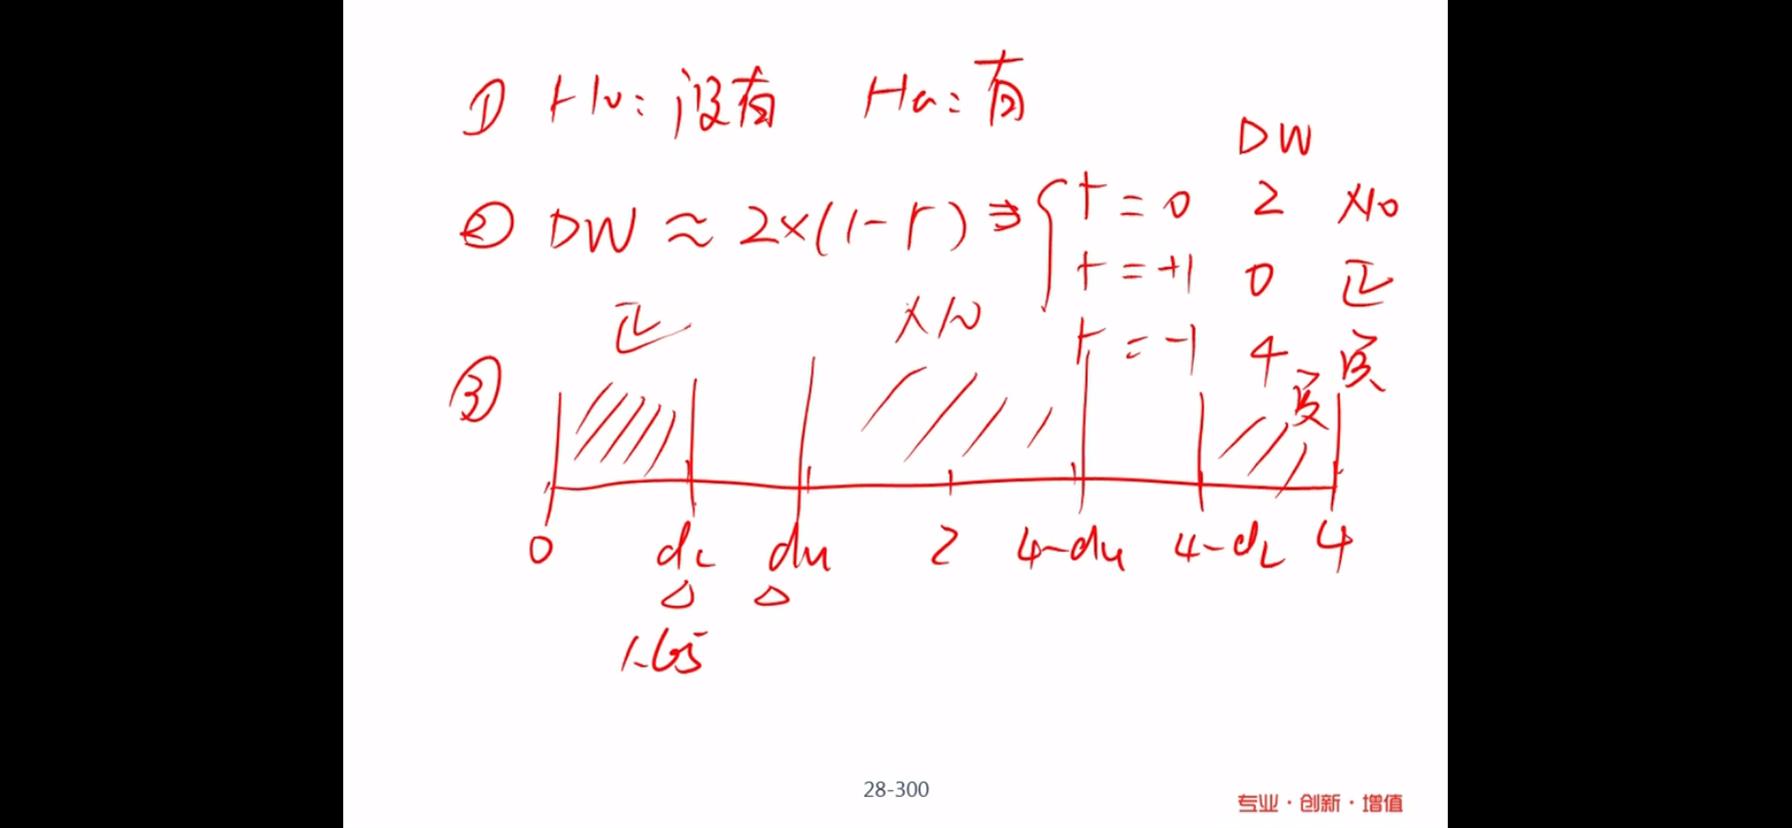 ① H0: 没有 Ha: 有
DW
② DW ≈ 2×(1-r) ⇒ { r = 0 2 No
r = +1 0 正
r = -1 4 负
③ 正 No 负
0 dL du 2 4-du 4-dL 4
△ △
1.65
28-300
专业·创新·增值